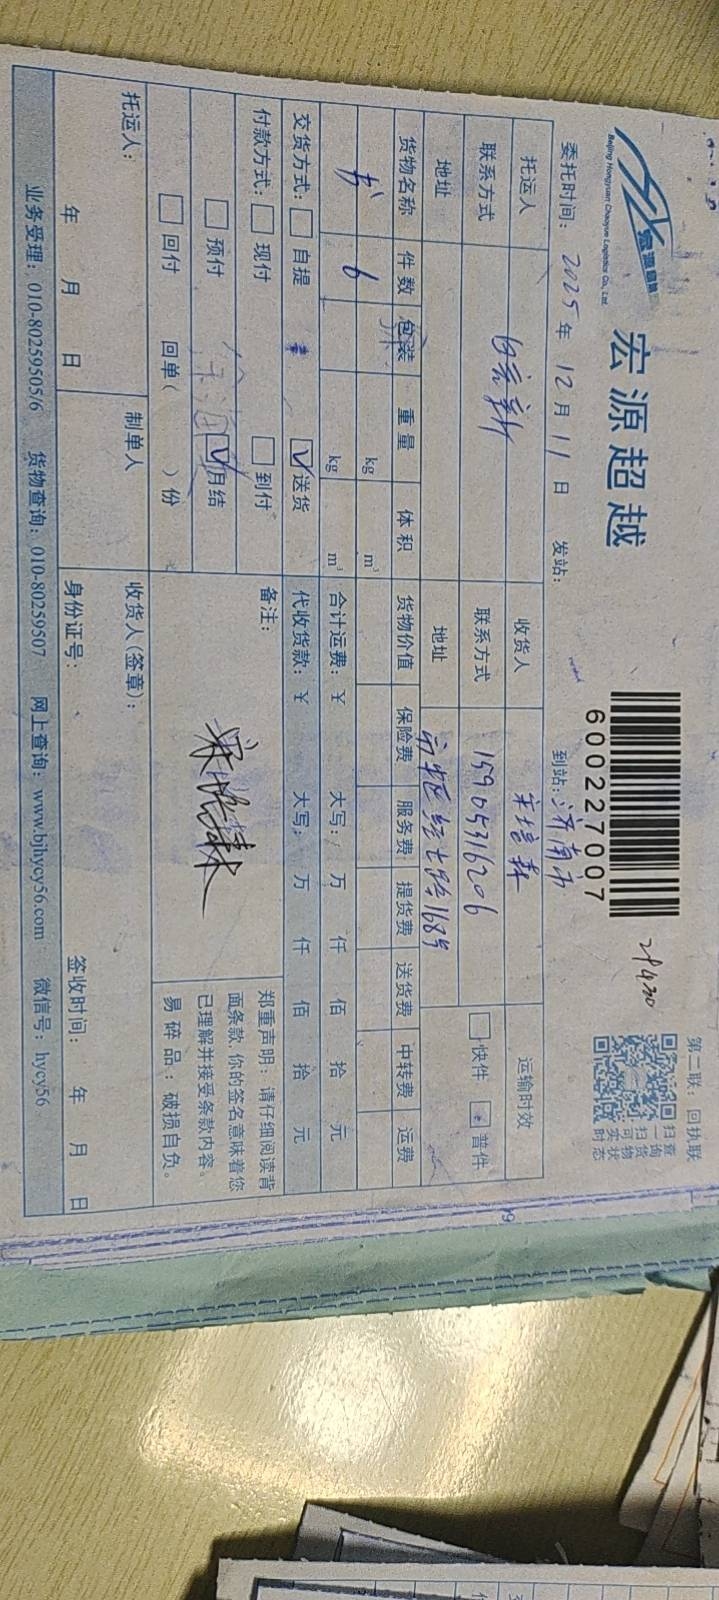 第二联：回执联
扫一扫
查询货物
可实时状态
宏源超越
Beijing Hongyuan Chaoyue Logistics Co., Ltd.
600227007
委托时间：2025年12月11日 发站： 到站：济南市
托运人 收货人 宋培森 运输时效
联系方式 联系方式 15905316206 快件 普件
地址 地址 市中区经七路168号
货物名称 件数 包装 重量 体积 货物价值 保险费 服务费 提货费 送货费 中转费 运费
书 6 kg m³
kg m³ 合计运费：¥ 大写： 万 仟 佰 拾 元
交货方式： 自提 送货 代收货款：¥ 大写： 万 仟 佰 拾 元
付款方式： 现付 到付 备注：
预付 月结
回付 回单（ ）份
郑重声明：请仔细阅读背
面条款，你的签名意味着您
已理解并接受条款内容。
易碎品：破损自负。
托运人： 制单人 收货人（签章）：
年 月 日 身份证号： 签收时间： 年 月 日
业务受理：010-80259505/6 货物查询：010-80259507 网上查询：www.bjhycy56.com 微信号：hycy56